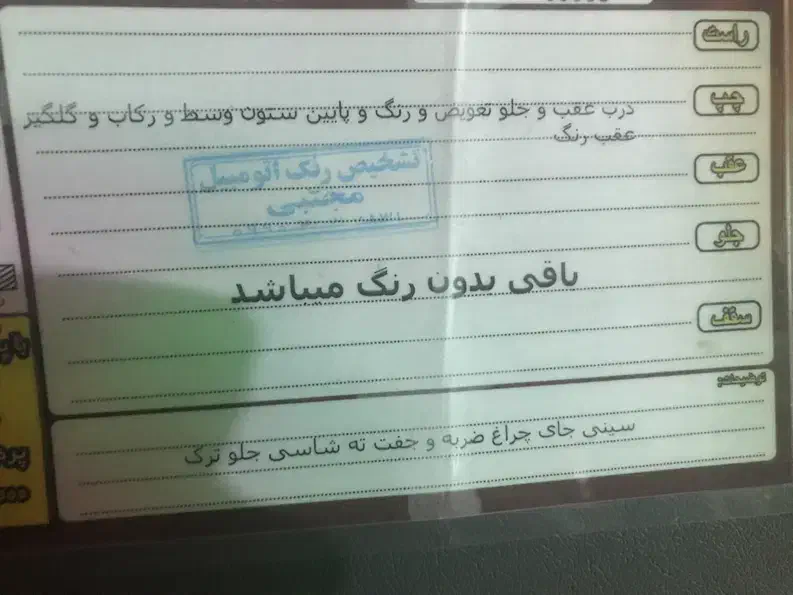 راست
چپ
درب عقب و جلو تعویض و رنگ و پایین ستون وسط و رکاب و گلگیر
عقب رنگ
عقب
تشخیص رنگ اتومبیل
مجتبی
جلو
باقی بدون رنگ میباشد
سقف
توضیحات:
سینی جای چراغ ضربه و جفت ته شاسی جلو ترک